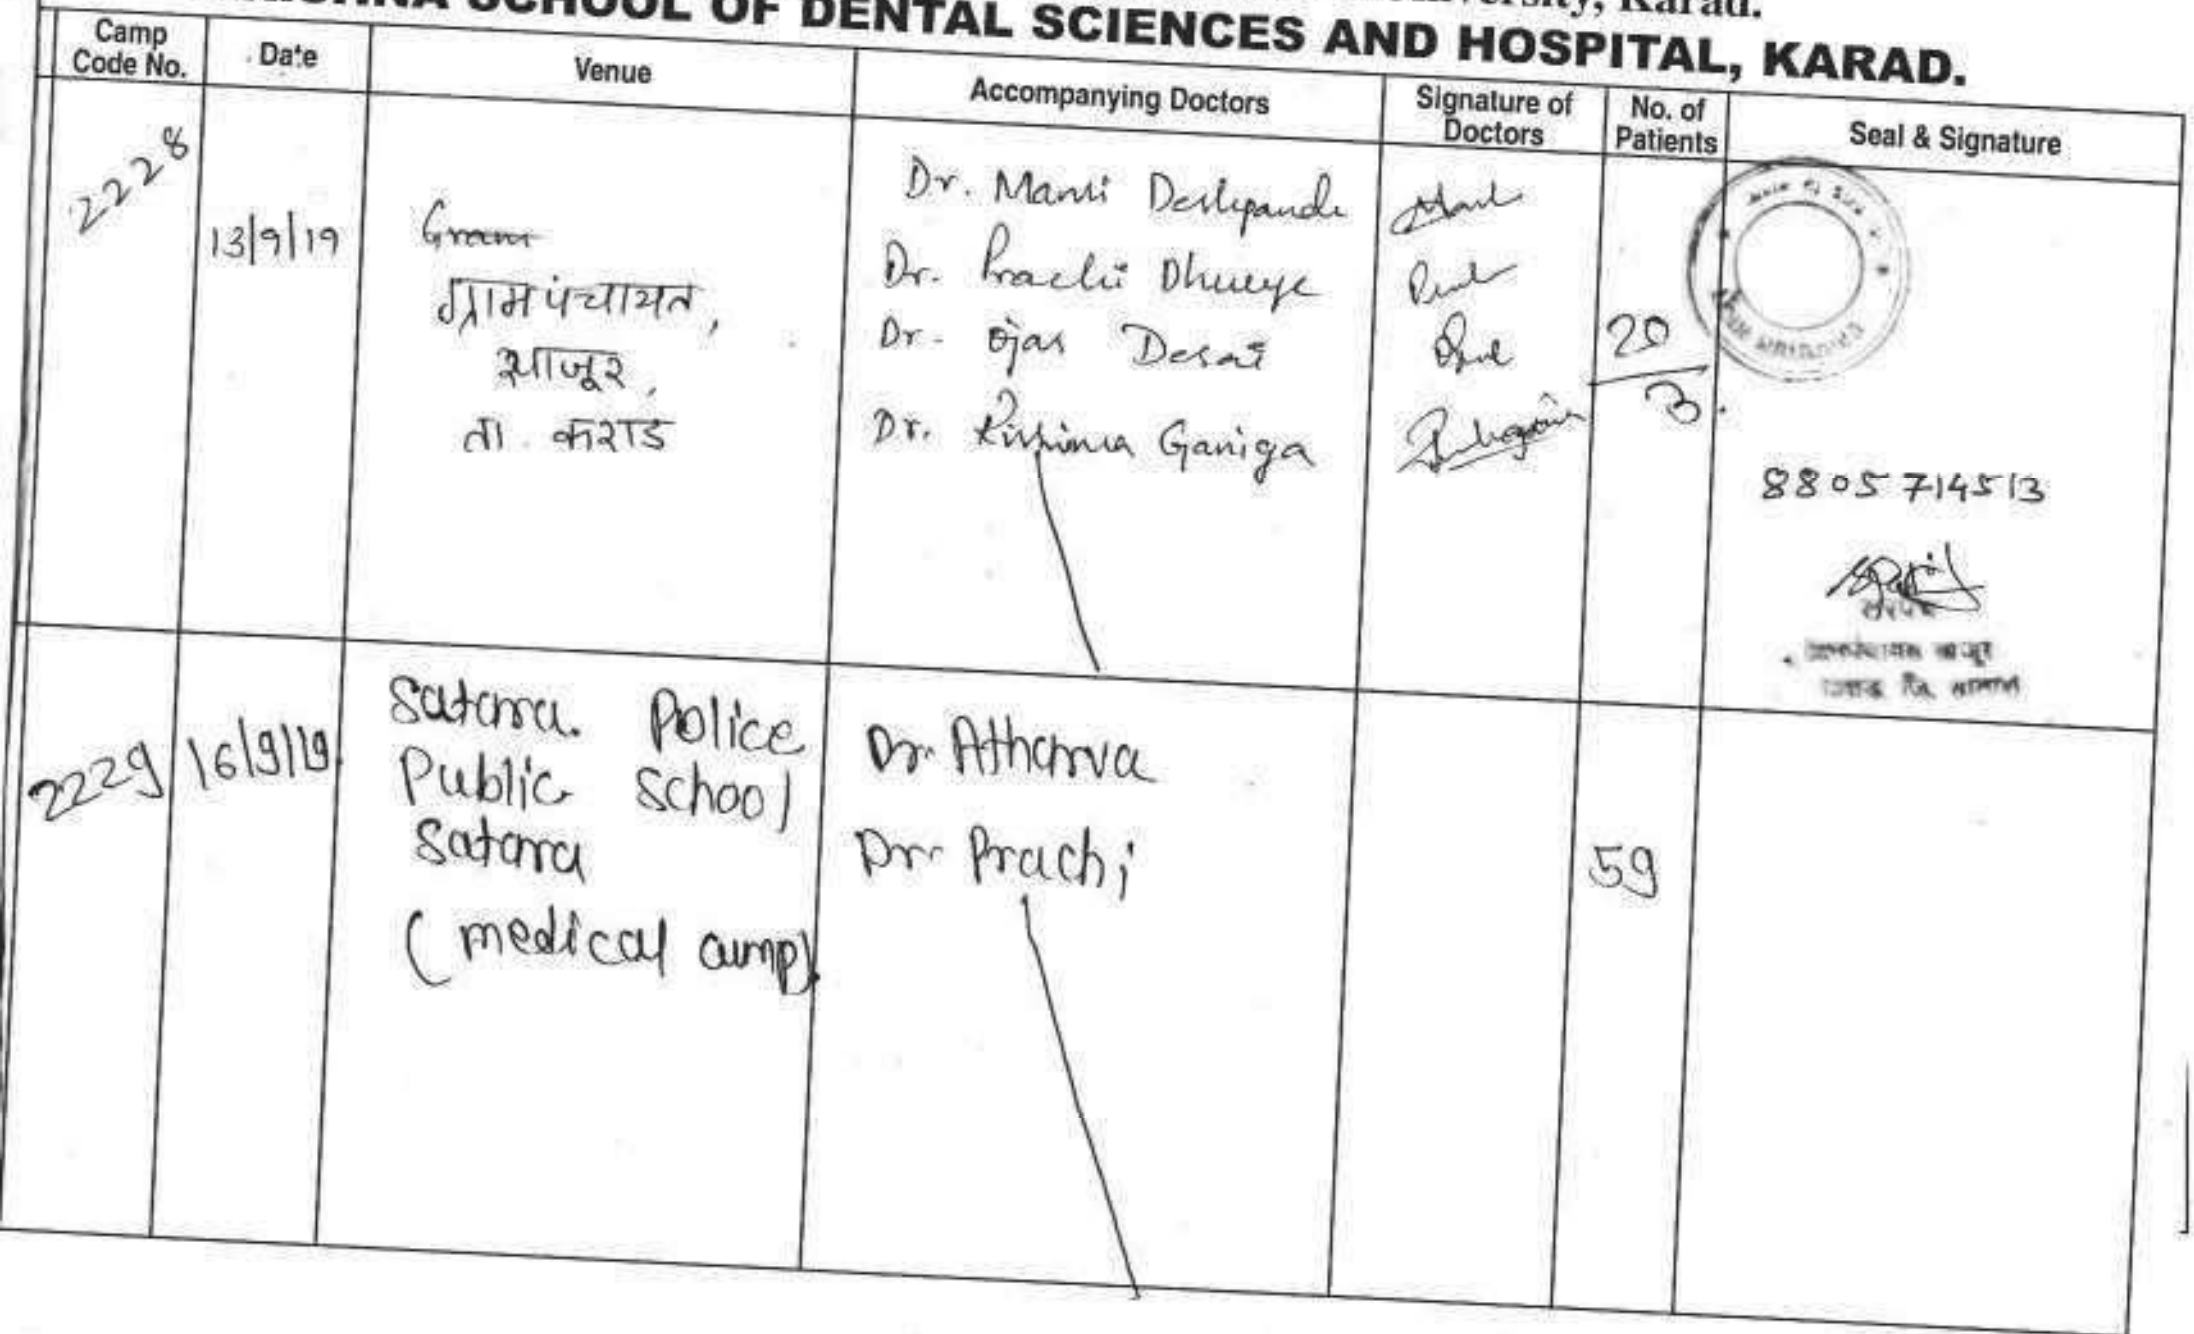 University, Karad.
SCHOOL OF DENTAL SCIENCES AND HOSPITAL, KARAD.
Camp Code No. Date Venue Accompanying Doctors Signature of Doctors No. of Patients Seal & Signature
2228
13/9/19
Gram
ग्रामपंचायत,
ता. कराड
Dr. Mansi Deshpande
Dr. Prachi
Dr. Ojas Desai
Dr. Ganiga
20
3
8805714513
2229
16/9/19
Satara Police
Public School
Satara
(medical camp)
Dr. Atharva
Dr. Prachi
59